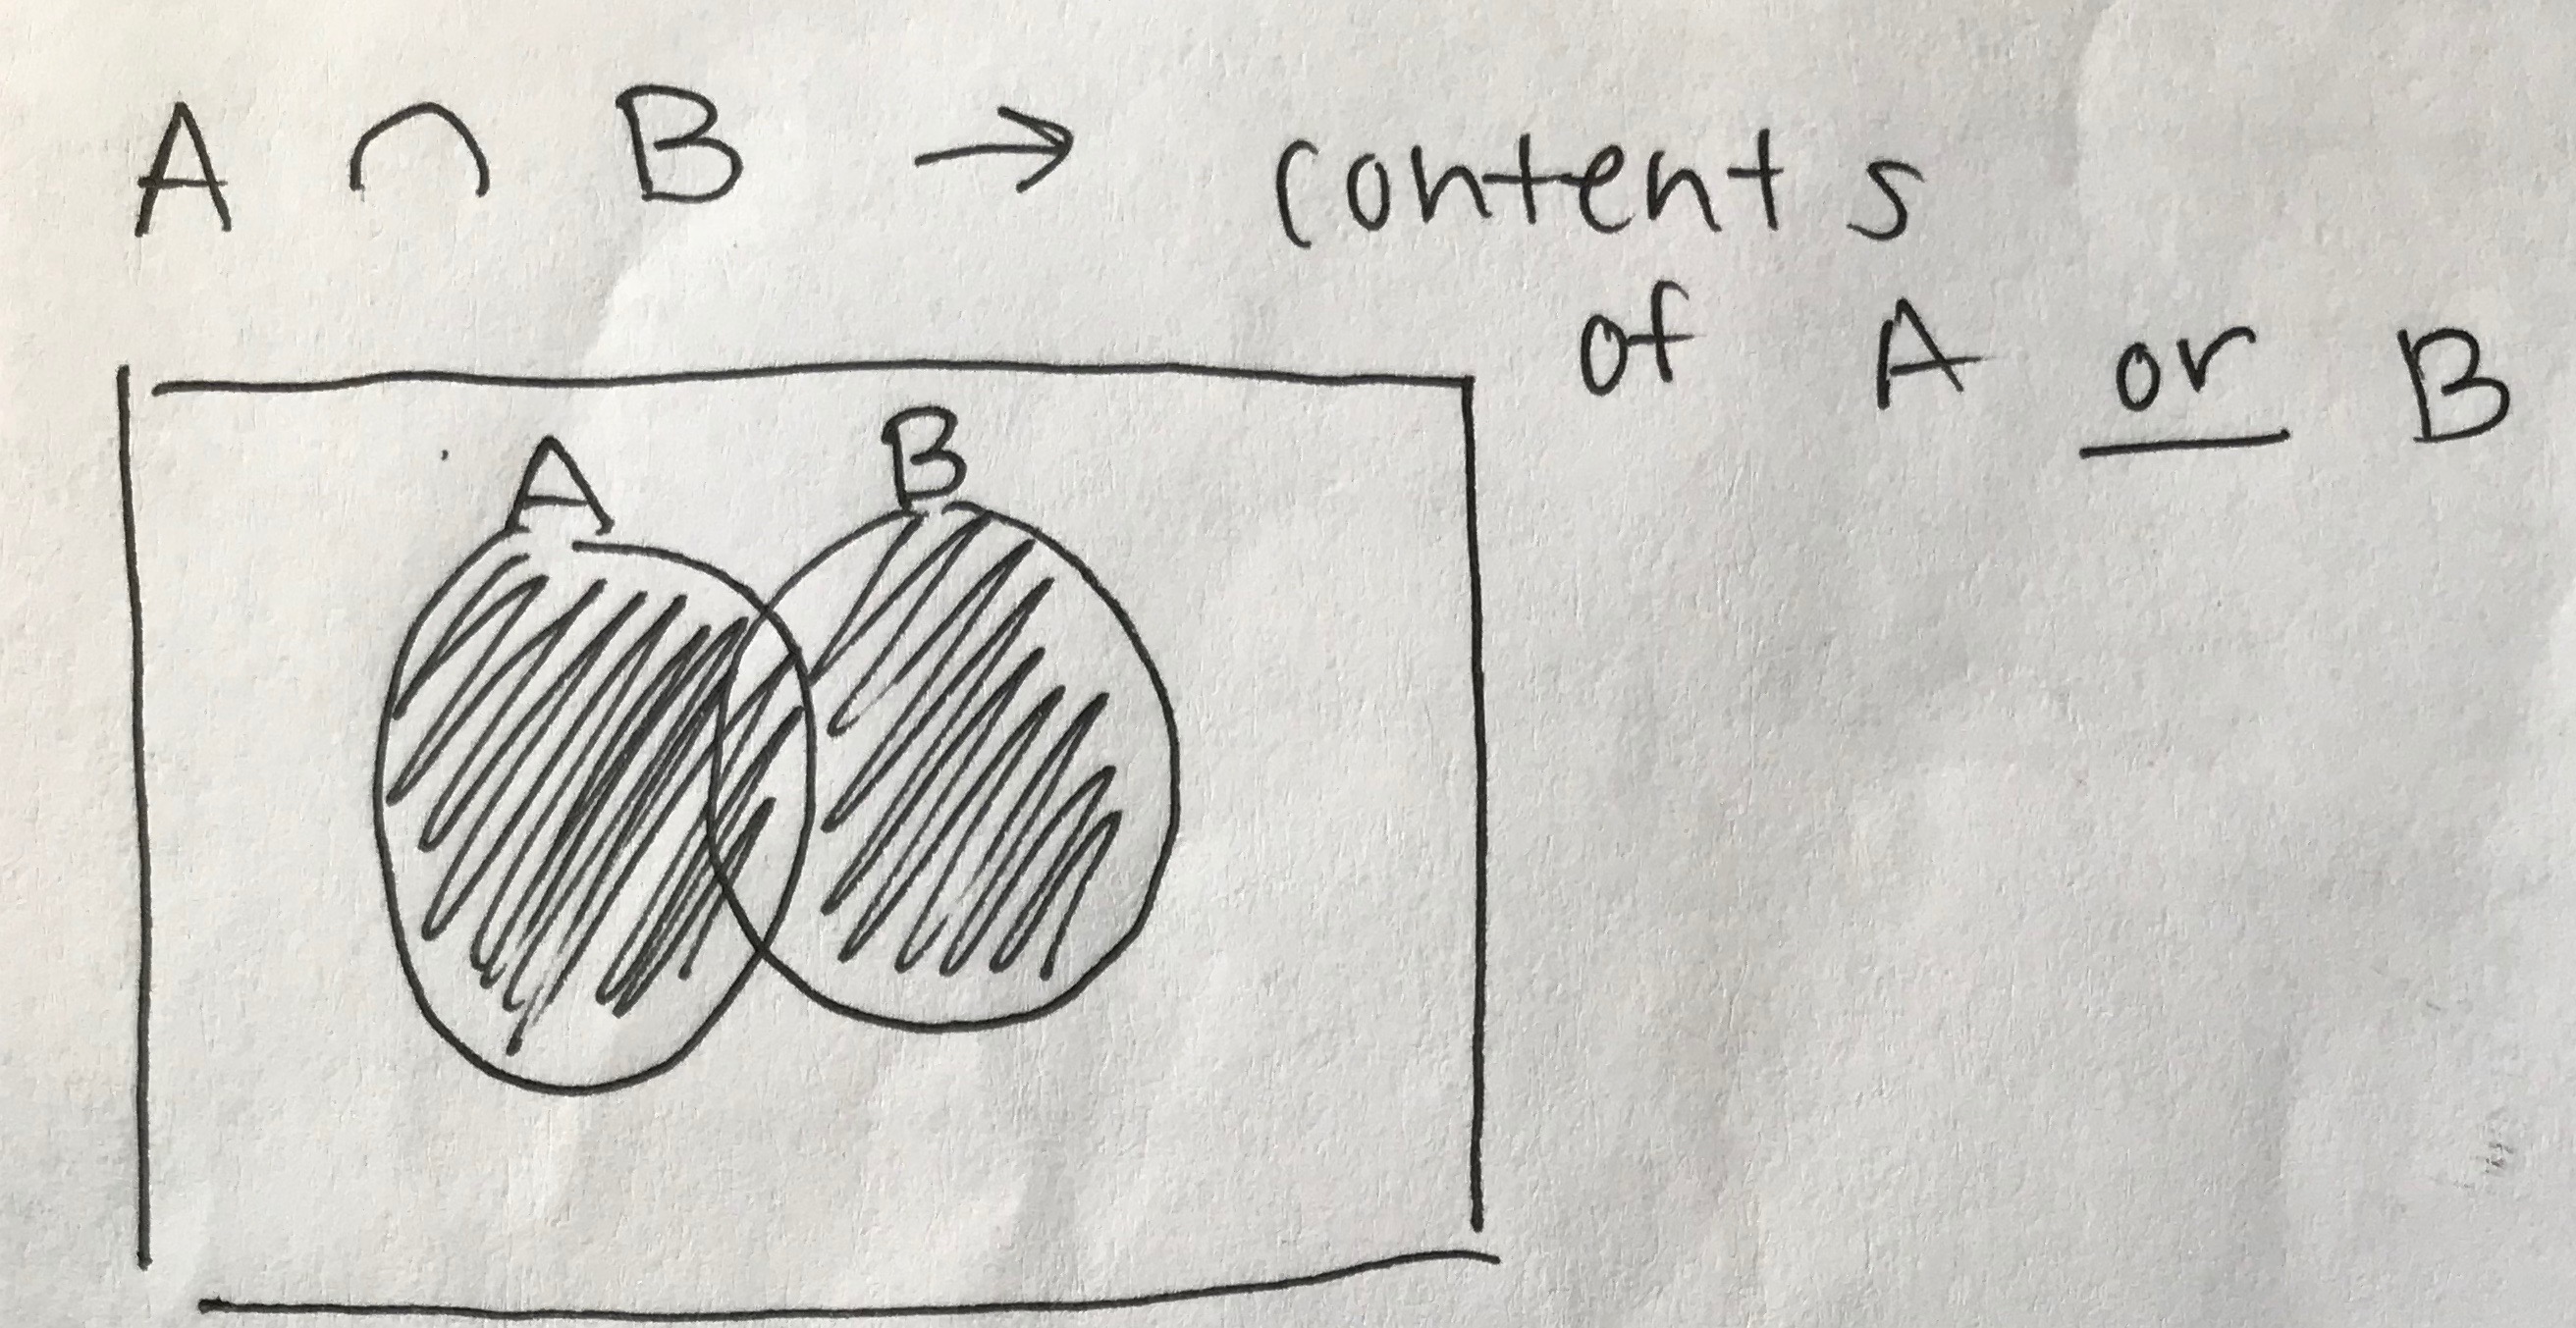 A ∩ B → contents
of A or B
A B